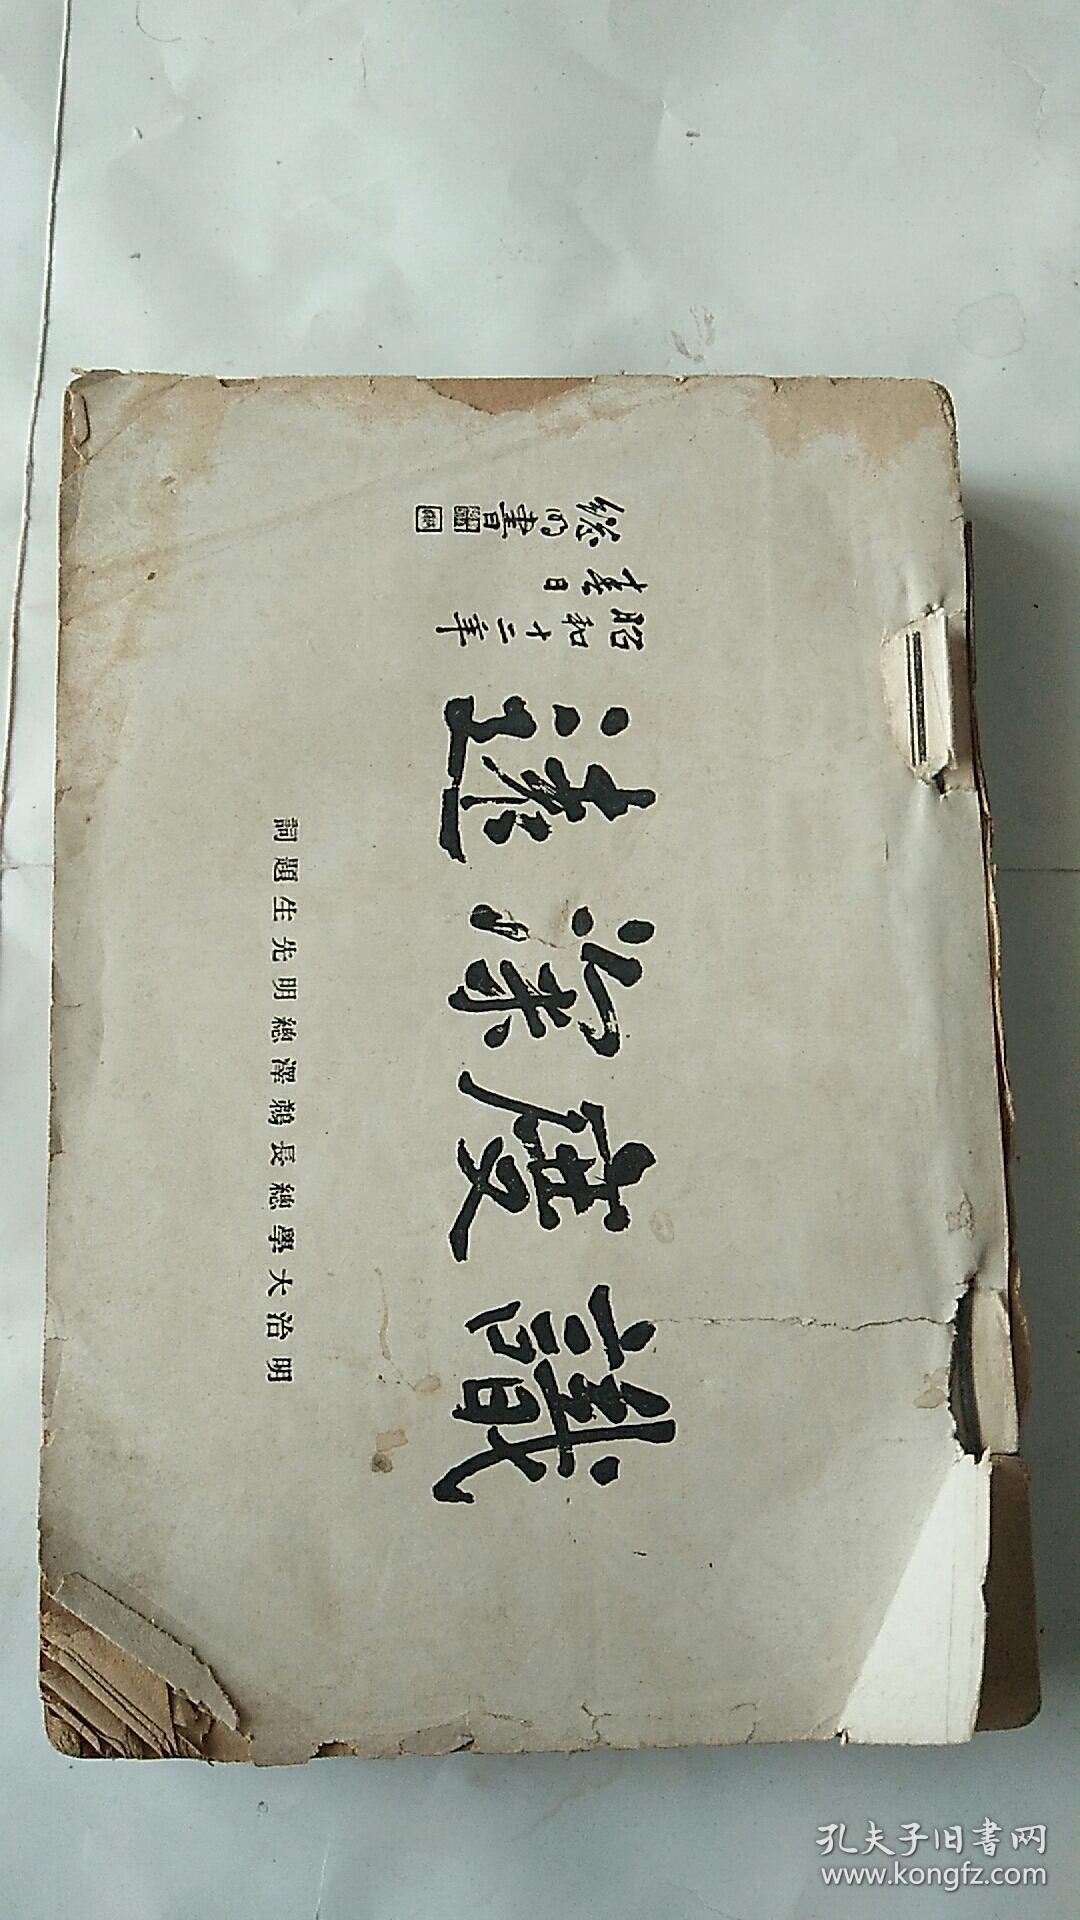 識度深遠
昭和十二年
春日
總明書
明治大學總長鵜澤總明先生題詞
孔夫子旧書网
www.kongfz.com